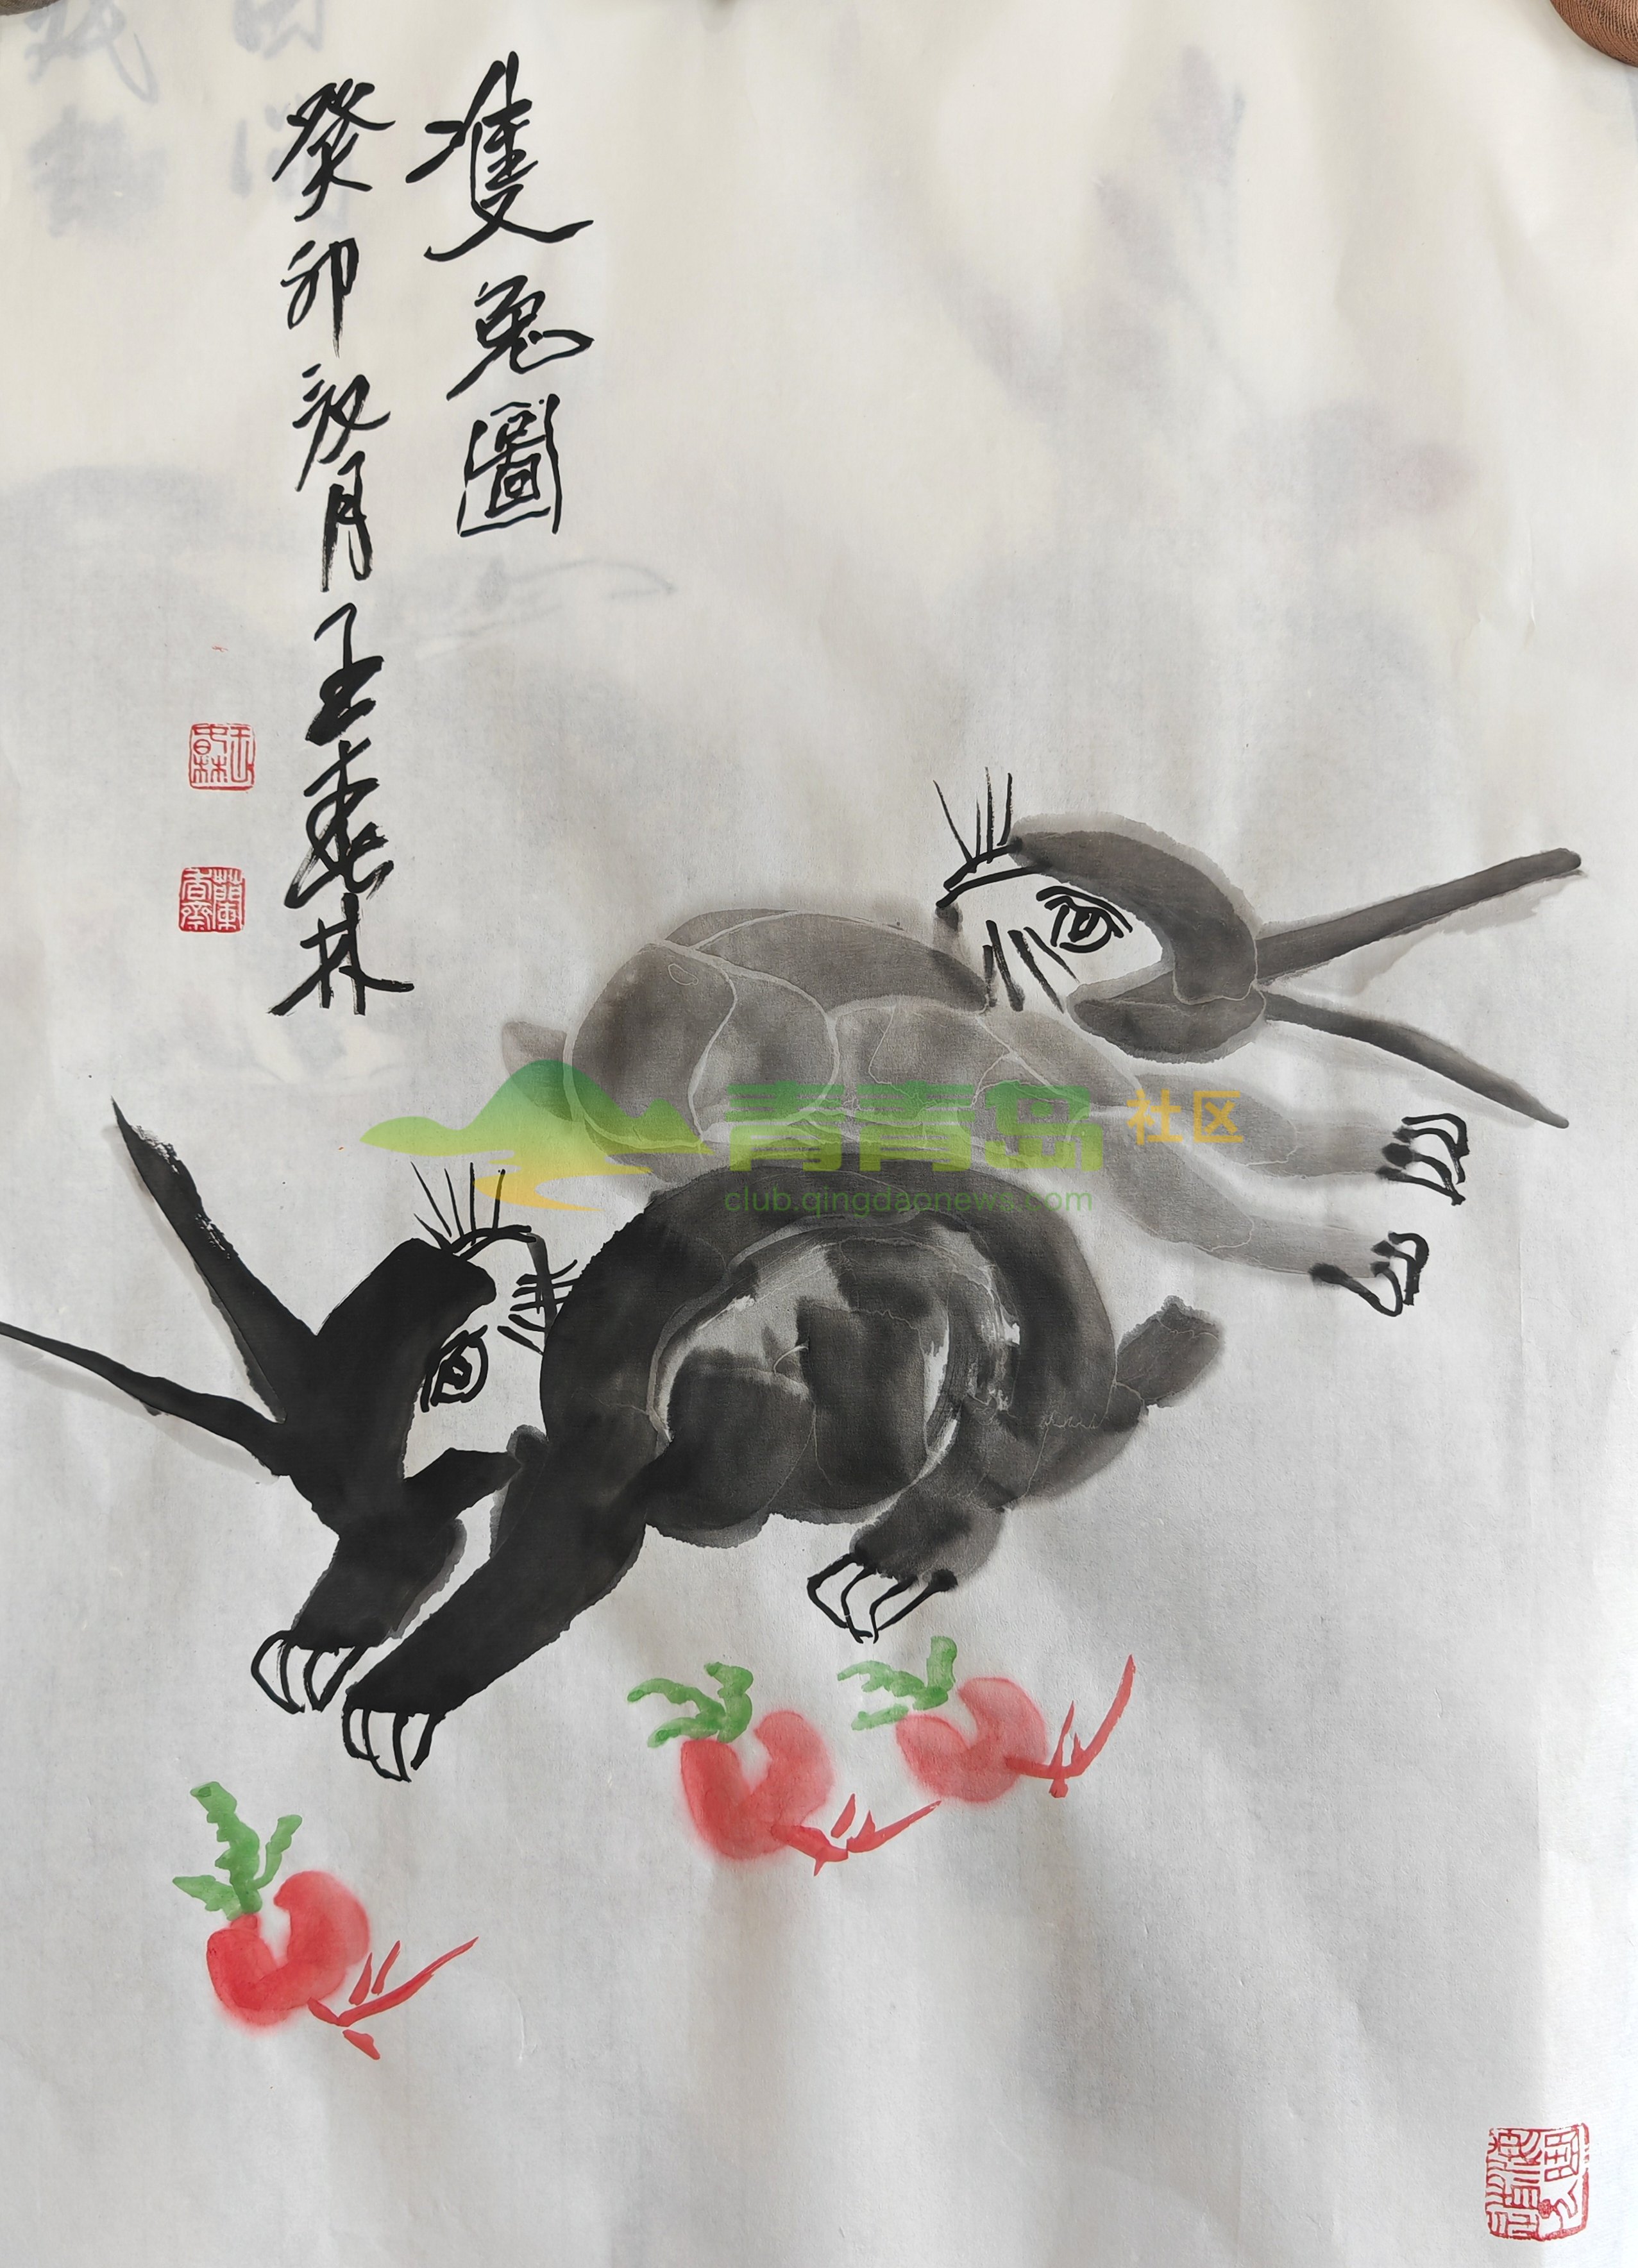 隻兔圖
癸卯
月王春林
青青岛社区
club.qingdaonews.com
蘭香齋